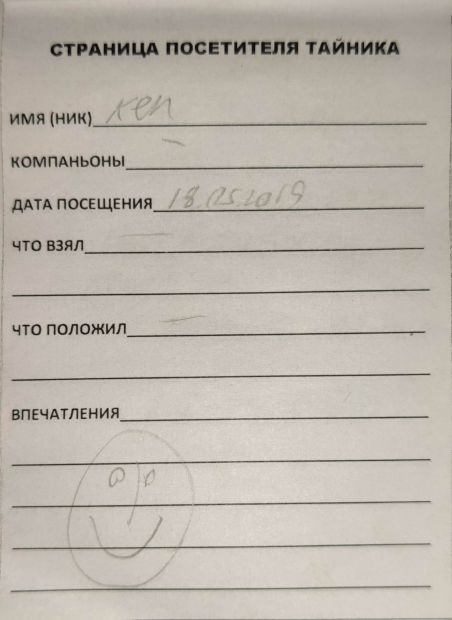 СТРАНИЦА ПОСЕТИТЕЛЯ ТАЙНИКА
ИМЯ (НИК) кеп
КОМПАНЬОНЫ –
ДАТА ПОСЕЩЕНИЯ 18.05.2019
ЧТО ВЗЯЛ –
ЧТО ПОЛОЖИЛ –
ВПЕЧАТЛЕНИЯ